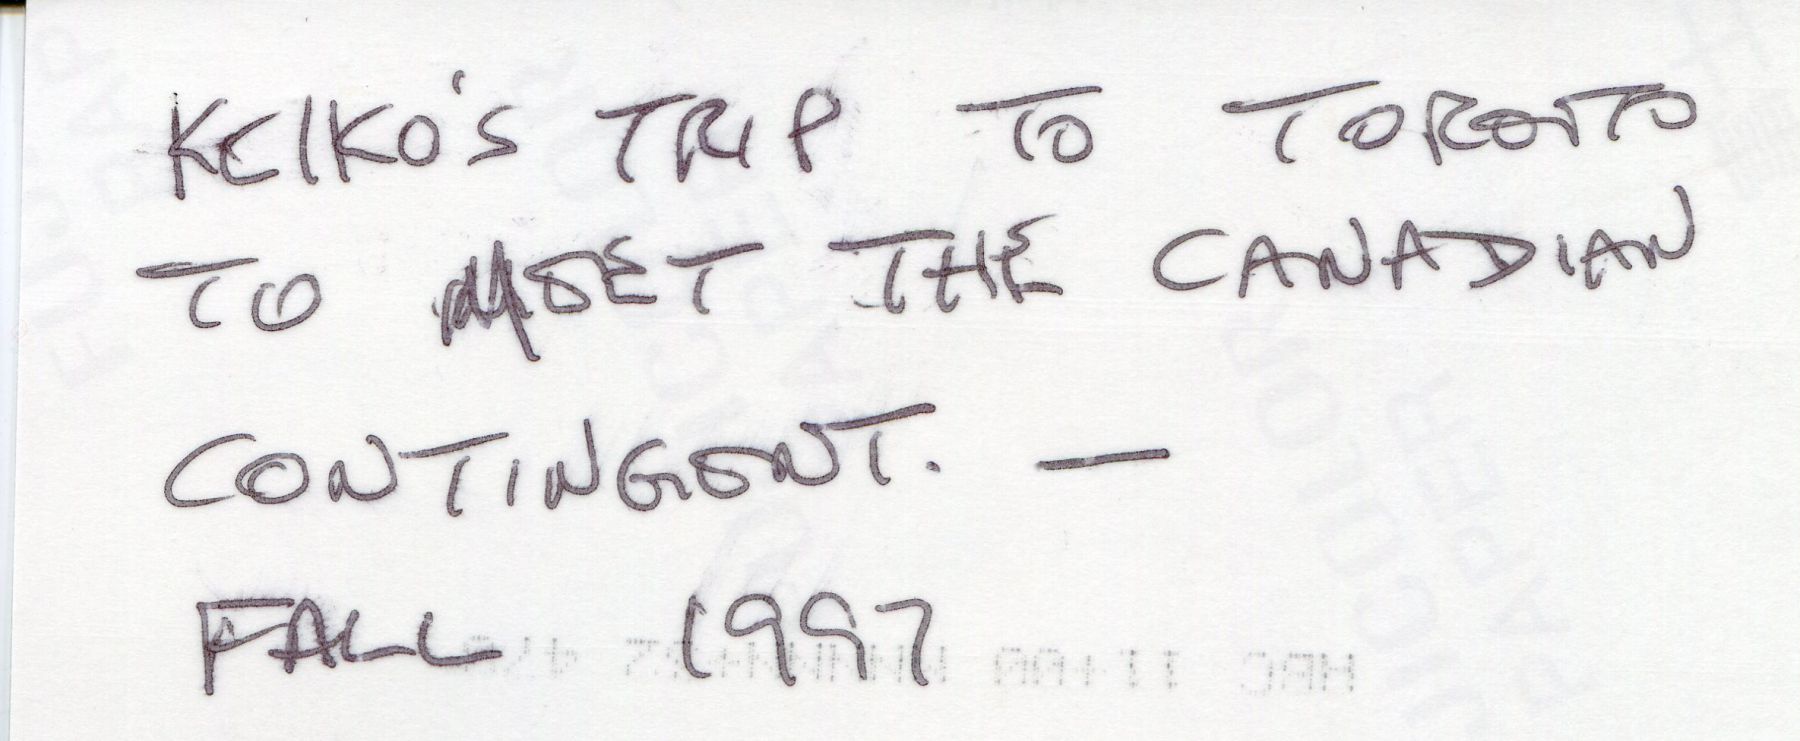 KEIKO'S TRIP TO TORONTO
TO MEET THE CANADIAN
CONTINGENT. —
FALL 1997